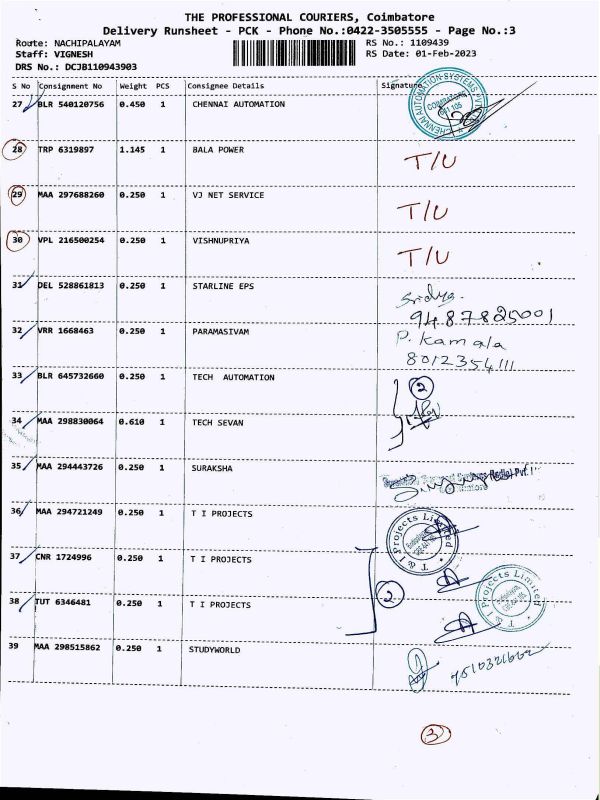 THE PROFESSIONAL COURIERS, Coimbatore
Delivery Runsheet - PCK - Phone No.:0422-3505555 - Page No.:3
Route: NACHIPALAYAM RS No.: 1109439
Staff: VIGNESH RS Date: 01-Feb-2023
DRS No.: DCJB110943903
S No Consignment No Weight PCS Consignee Details Signature
27 BLR 540120756 0.450 1 CHENNAI AUTOMATION
CHENNAI AUTOMATION SYSTEMS PVT
COIMBATORE
641 105
28 TRP 6319897 1.145 1 BALA POWER T/U
29 MAA 297688260 0.250 1 VJ NET SERVICE T/U
30 VPL 216500254 0.250 1 VISHNUPRIYA T/U
31 DEL 528861813 0.250 1 STARLINE EPS
Sridya.
9487825001
32 VRR 1668463 0.250 1 PARAMASIVAM P. Kamala
8012354111
33 BLR 645732660 0.250 1 TECH AUTOMATION 2
34 MAA 298830064 0.610 1 TECH SEVAN
35 MAA 294443726 0.250 1 SURAKSHA
36 MAA 294721249 0.250 1 T I PROJECTS
T & I Projects Limited
37 CNR 1724996 0.250 1 T I PROJECTS
38 TUT 6346481 0.250 1 T I PROJECTS 2
T & I Projects Limited
39 MAA 298515862 0.250 1 STUDYWORLD
3